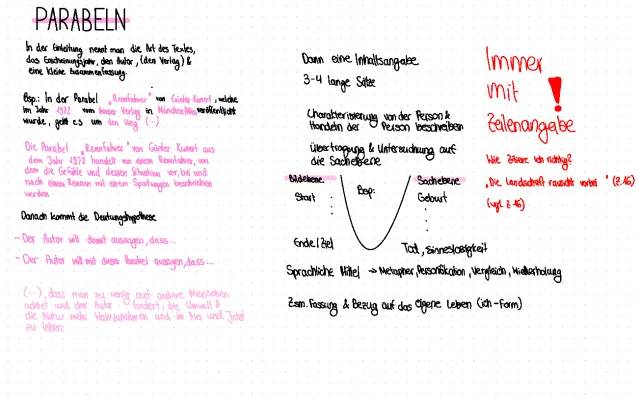 PARABELN
In der Einleitung nennt man die Art des Textes,
das Erscheinungsjahr, den Autor, (den Verlag) &
eine kleine Zusammenfassung.
Bsp.: In der Parabel „Rennfahrer" von Günter Kunert, welche
im Jahr 1972 vom Hanser Verlag in München veröffentlicht
wurde, geht es um den Weg (...)
Die Parabel „Rennfahrer" von Günter Kunert aus
dem Jahr 1972 handelt von einem Rennfahrer, von
dem die Gefühle und dessen Situation vor, bei und
nach einem Rennen mit einem Sportwagen beschrieben
werden
Danach kommt die Deutungshypothese
- Der Autor will damit aussagen, dass ...
- Der Autor will mit dieser Parabel aussagen, dass ...
(...), dass man zu wenig auf andere Menschen
achtet und der Autor fordert, die Umwelt &
die Natur mehr wahrzunehmen und im Hier und Jetzt
zu leben.
Dann eine Inhaltsangabe
3-4 lange Sätze
Charakterisierung von der Person &
Handeln der Person beschreiben
Übertragung & Untersuchung auf
die Sachebene
Bildebene Bsp: Sachebene
Start Geburt
Ende / Ziel Tod, Sinneslosigkeit
Sprachliche Mittel → Metapher, Personifikation, Vergleich, Wiederholung
Zsm. Fassung & Bezug auf das eigene Leben (ich-Form)
Immer
mit
Zeilenangabe
!
Wie zitiere ich richtig?
„Die Landschaft rauscht vorbei" (Z.16)
(vgl. Z.16)